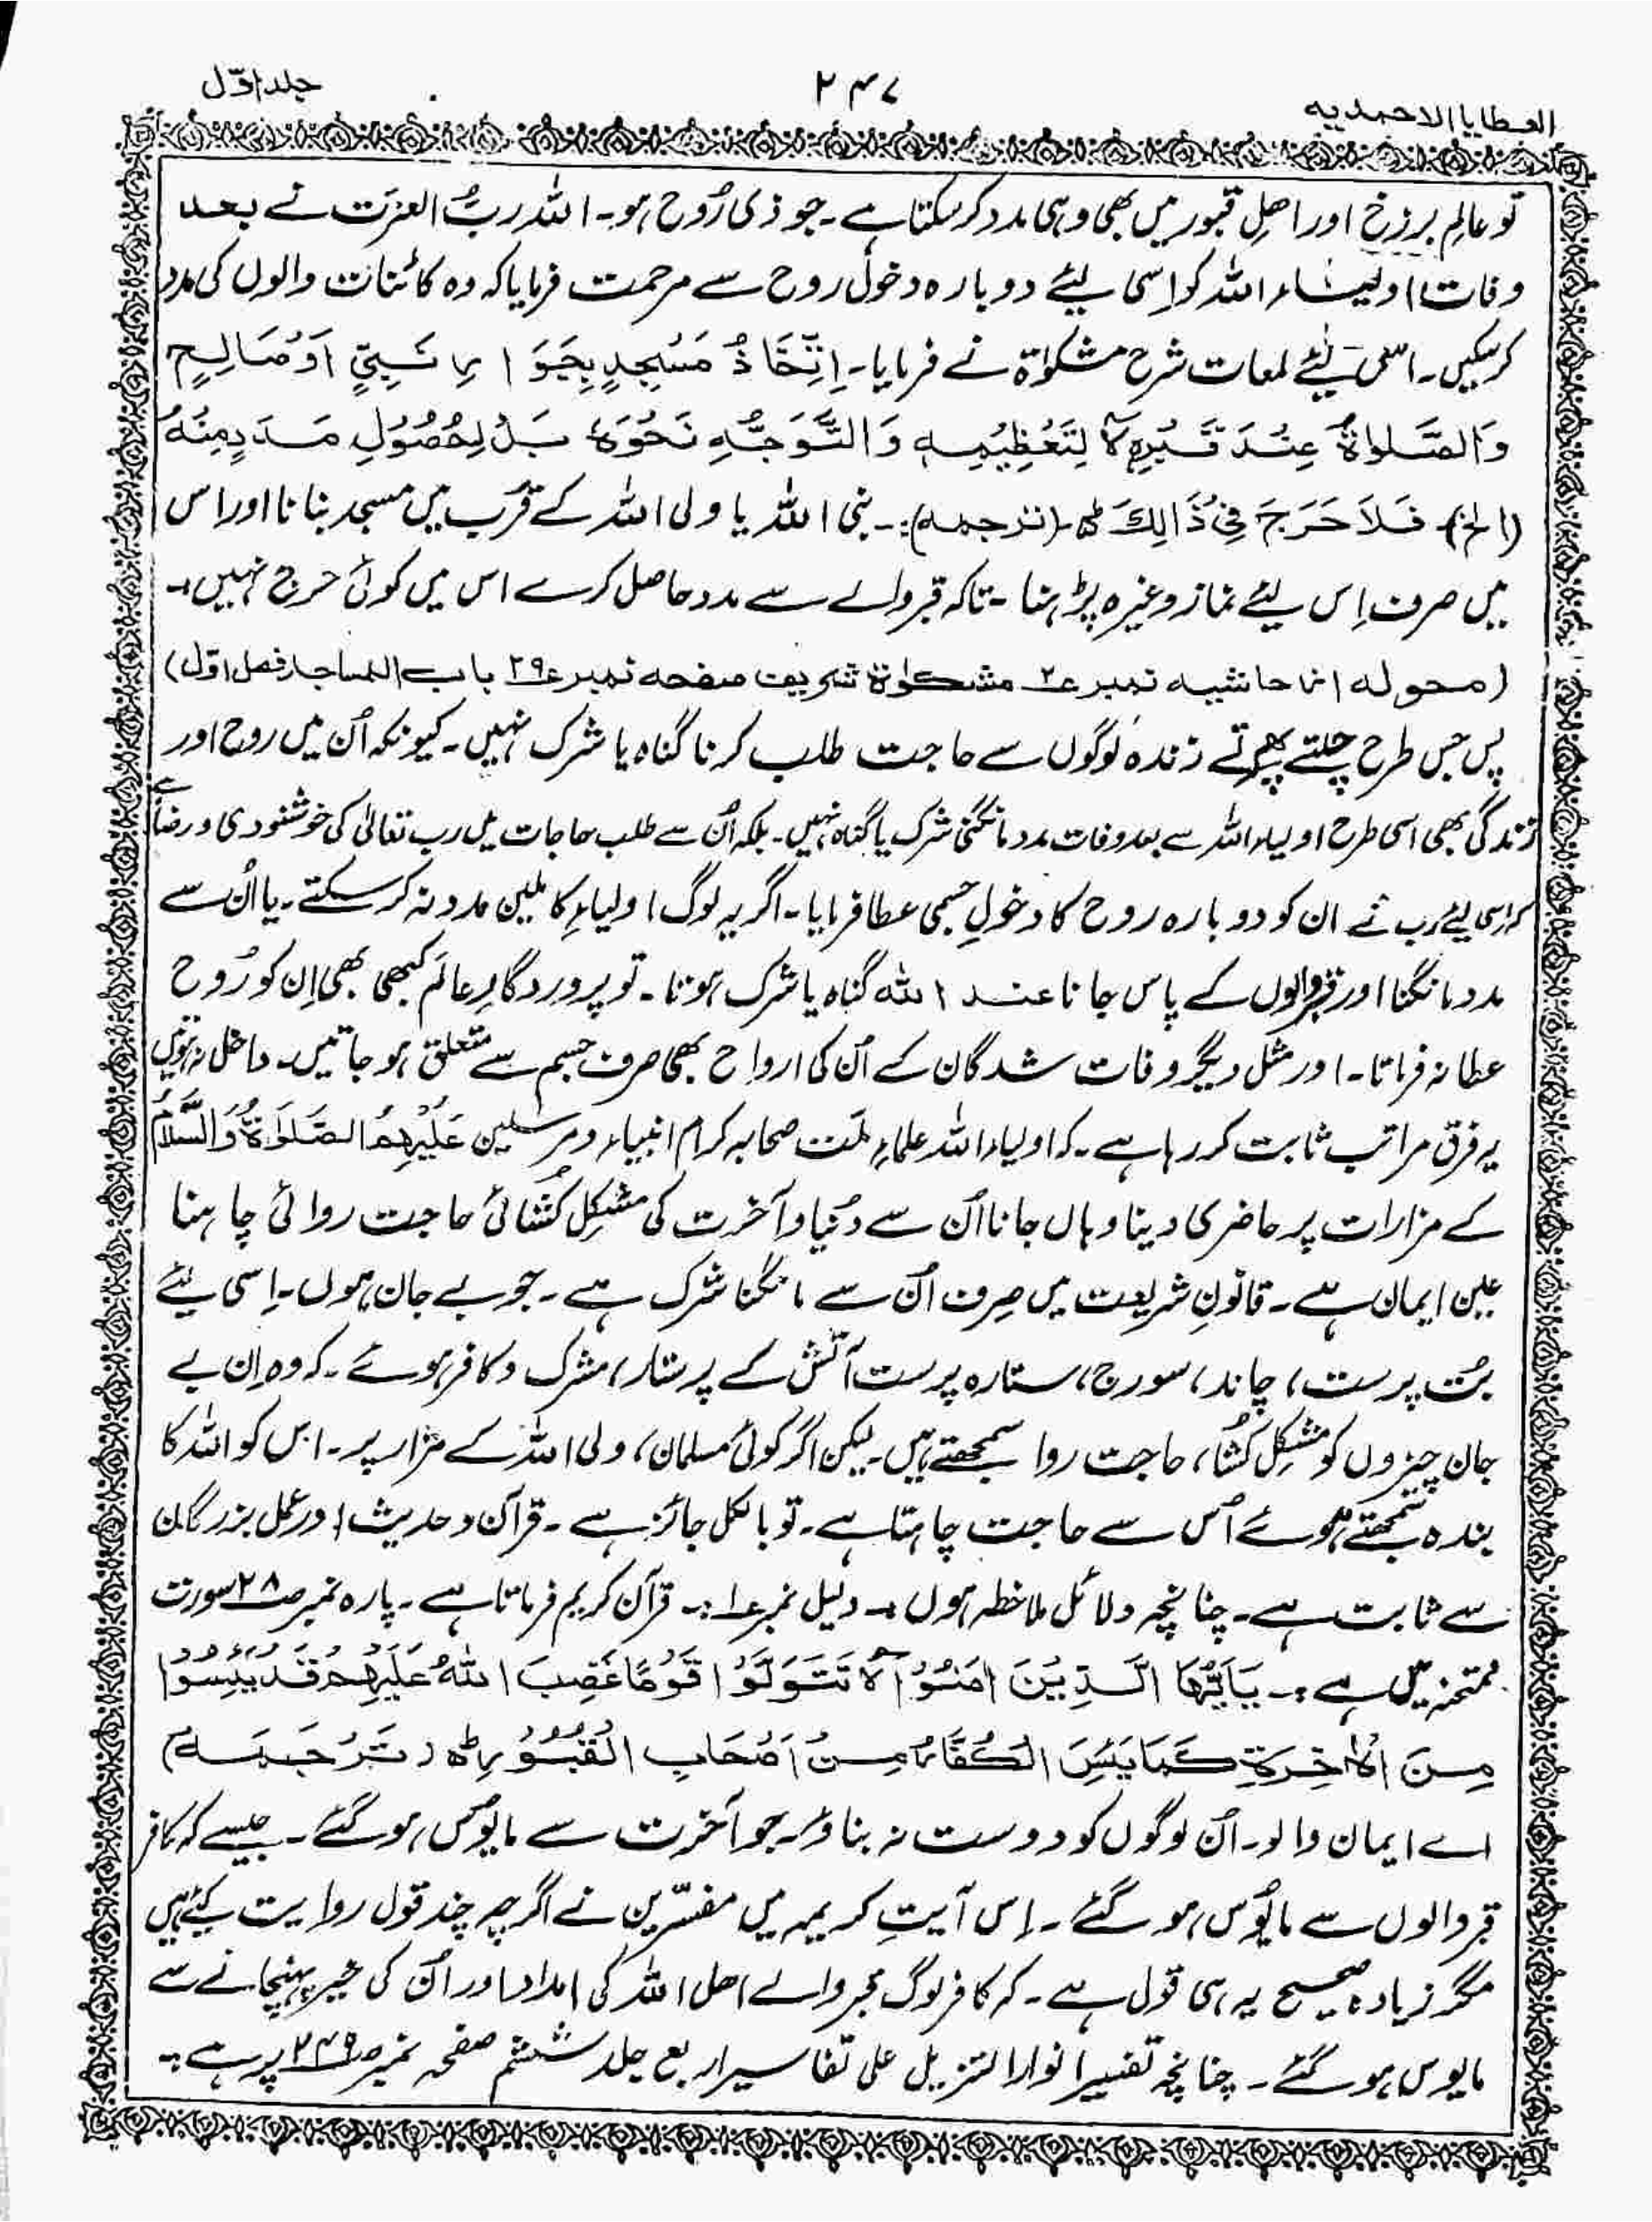 العطایا الاحمدیہ
۲۴۷
جلد اوّل
تو عالمِ برزخ اور اھلِ قبور میں بھی وہی مدد کر سکتا ہے۔ جو ذی رُوح ہو۔ اللہ ربُّ العزت نے بعد
وفات اولیاء اللہ کو اِسی لیئے دوبارہ دخولُ روح سے مرحمت فرمایا کہ وہ کائنات والوں کی مدد
کر سکیں۔ اسی لیٔے لمعات شرح مشکوٰۃ نے فرمایا۔ اِتِّخَاذُ مَسْجِدٍ بِجَوَارِ نَبِيٍّ اَوْ صَالِحٍ
وَالصَّلوٰۃُ عِنْدَ قَبْرِہٖ لَا لِتَعْظِیْمِہٖ وَالتَّوَجُّہِ نَحْوَہٗ بَلْ لِحُصُوْلِ مَدَدٍ مِنْہُ
(الخ) فَلَا حَرَجَ فِیْ ذَالِکَ ط۔ (ترجمہ):۔ نبی اللہ یا ولی اللہ کے قُرب میں مسجد بنانا اور اس
میں صرف اِس لیئے نماز وغیرہ پڑہنا۔ تاکہ قبر والے سے مدد حاصل کرے اس میں کوئی حرج نہیں۔
(محولہ از حاشیہ نمبر ۲ مشکوٰۃ شریف صفحہ نمبر ۲۹ باب المساجد فصل اوّل)
پس جس طرح چلتے پھرتے زندہ لوگوں سے حاجت طلب کرنا گناہ یا شرک نہیں۔ کیونکہ اُن میں روح اور
زندگی بھی اسی طرح اولیاء اللہ سے بعد وفات مدد مانگنی شرک یا گناہ نہیں۔ بلکہ اُن سے طلب حاجات میں رب تعالیٰ کی خوشنودی و رضا ہے
کہ اسی لیئے رب نے ان کو دوبارہ روح کا دخولِ جسمی عطا فرمایا۔ اگر یہ لوگ اولیاءِ کاملین مدد نہ کر سکتے۔ یا اُن سے
مدد مانگنا اور قبر والوں کے پاس جانا عند اللہ گناہ یا شرک ہوتا۔ تو پروردگارِ عالَم کبھی بھی اِن کو رُوح
عطا نہ فرماتا۔ اور مثل دیگر وفات شدگان کے اُن کی ارواح بھی صرف جسم سے متعلق ہو جاتیں۔ داخل نہ ہوتیں
یہ فرق مراتب ثابت کر رہا ہے۔ کہ اولیاء اللہ علماءِ ملّت صحابہ کرام انبیاء و مرسلین عَلَیْہِمُ الصَّلوٰۃُ وَالسَّلَامُ
کے مزارات پر حاضری دینا وہاں جانا اُن سے دُنیا و آخرت کی مشکل کُشائی حاجت روائی چاہنا
عین ایمان ہے۔ قانونِ شریعت میں صِرف اُن سے مانگنا شرک ہے۔ جو بے جان ہوں۔ اِسی لیئے
بُت پرست، چاند، سورج، ستارہ پرست آتش کے پرستار، مشرک و کافر ہوئے۔ کہ وہ اِن بے
جان چیزوں کو مشکل کُشا، حاجت روا سمجھتے ہیں۔ لیکن اگر کوئی مُسلمان، ولی اللہ کے مزار پر۔ اس کو اللہ کا
بندہ سمجھتے ہوئے اُس سے حاجت چاہتا ہے۔ تو بالکل جائز ہے۔ قرآن و حدیث اور عمل بزرگان
سے ثابت ہے۔ چنانچہ دلائل ملاخظہ ہوں۔ دلیل نمبر ۱:۔ قرآن کریم فرماتا ہے۔ پارہ نمبر ۲۸ سورت
ممتحنہ میں ہے:۔ یٰاَیُّھَا الَّذِیْنَ اٰمَنُوْا لَا تَتَوَلَّوْا قَوْمًا غَضِبَ اللّٰہُ عَلَیْہِمْ قَدْ یَئِسُوْا
مِنَ الْاٰخِرَۃِ کَمَا یَئِسَ الْکُفَّارُ مِنْ اَصْحَابِ الْقُبُوْرِ ط۰ (تَرْجَمَہ)
اے ایمان والو۔ اُن لوگوں کو دوست نہ بناؤ۔ جو آخرت سے مایُوس ہو گئے۔ جیسے کہ کافر
قبر والوں سے مایُوس ہو گئے۔ اِس آیتِ کریمہ میں مفسّرین نے اگرچہ چند قول روایت کیئے ہیں
مگر زیادہ صحیح یہ ہی قول ہے۔ کہ کافر لوگ قبر والے اھل اللہ کی امداد اور اُن کی خیر پہنچانے سے
مایوس ہو گئے۔ چنانچہ تفسیر انوار التنزیل علی تفاسیر اربع جلد ششم صفحہ نمبر ۲۴۹ پر ہے:۔